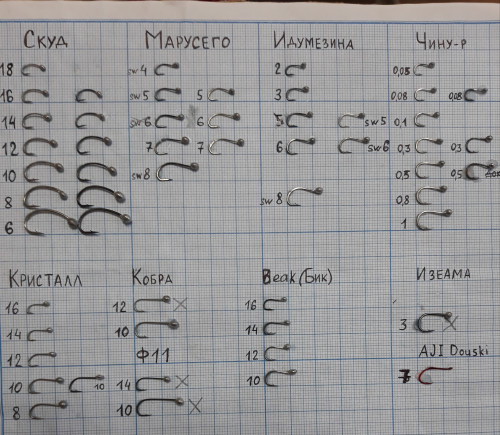 Скуд
18
16
14
12
10
8
6
Марусего
sw4
sw5 5
sw6 6
7 7
sw8
Идумезина
2
3
5 sw5
6 sw6
sw8
Чину-р
0,05
0,08 0,08
0,1
0,3 0,3
0,5 0,5
0,8
1
Кристалл
16
14
12
10 10
8
Кобра
12 X
10
Ф11
14 X
10 X
Beak (Бик)
16
14
12
10
Изеама
3 X
AJI Douski
7